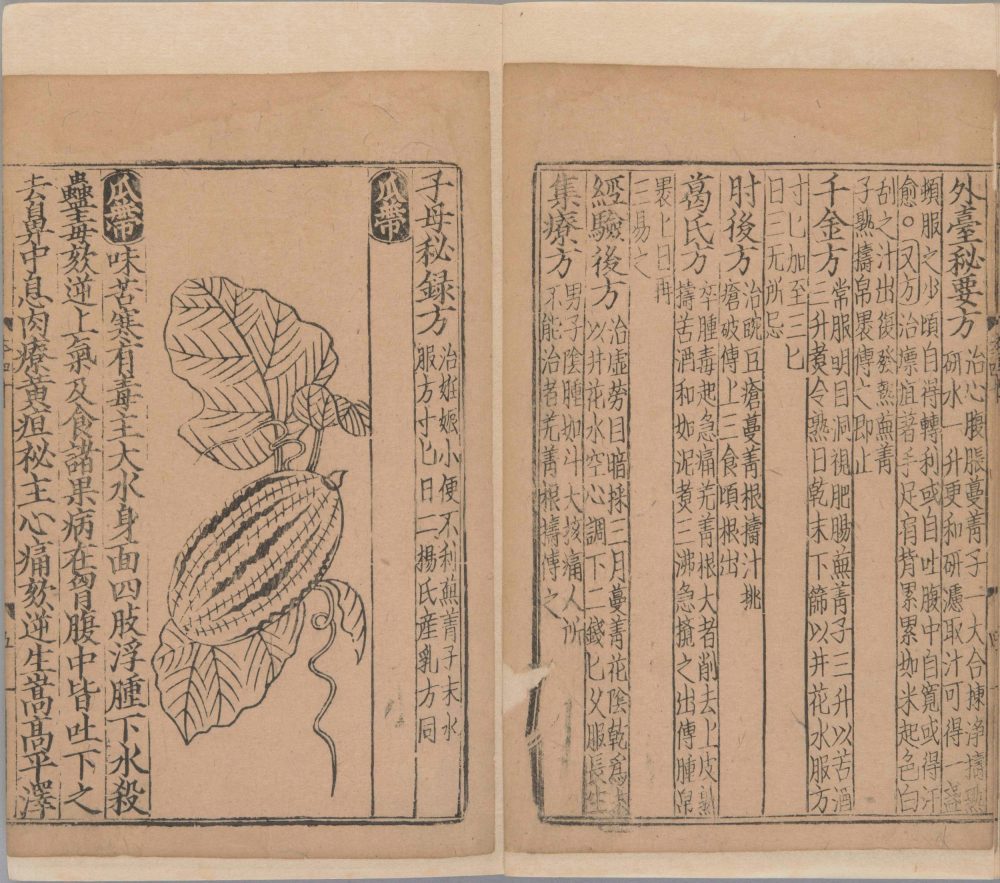 外臺秘要方
治心腹脹蔓菁子一大合揀淨擣熟
研水一升更和研濾取汁可得一盞
頓服之少頃自得轉利或自吐腹中自寬或得汗
愈○又方治瘭疽著手足肩背累累如米起色白
刮之汁出復發熱蕪菁
子熟擣帛裹傅之即止
千金方
常服明目洞視肥腸蕪菁子三升以苦酒
三升煑令熟日乾末下篩以井花水服方
寸匕加至三匕
日三无所忌
肘後方
治豌豆瘡蔓菁根擣汁挑
瘡破傅上三食頃根出
葛氏方
卒腫毒起急痛羌菁根大者削去上皮熟
擣苦酒和如泥煑三沸急攪之出傅腫帛
裹上日再
三易之
經驗後方
治虛勞目暗採三月蔓菁花陰乾爲末
以井花水空心調下二錢匕父服長生
集療方
男子陰腫如斗大核痛人所
不能治者羌菁根擣傅之
子母秘録方
治姙娠小便不利蕪菁子末水
服方寸匕日二楊氏産乳方同
瓜蔕
瓜蔕
味苦寒有毒主大水身面四肢浮腫下水殺
蠱毒欬逆上氣及食諸果病在胷腹中皆吐下之
去鼻中息肉療黃疸秘主心痛欬逆生嵩髙平澤